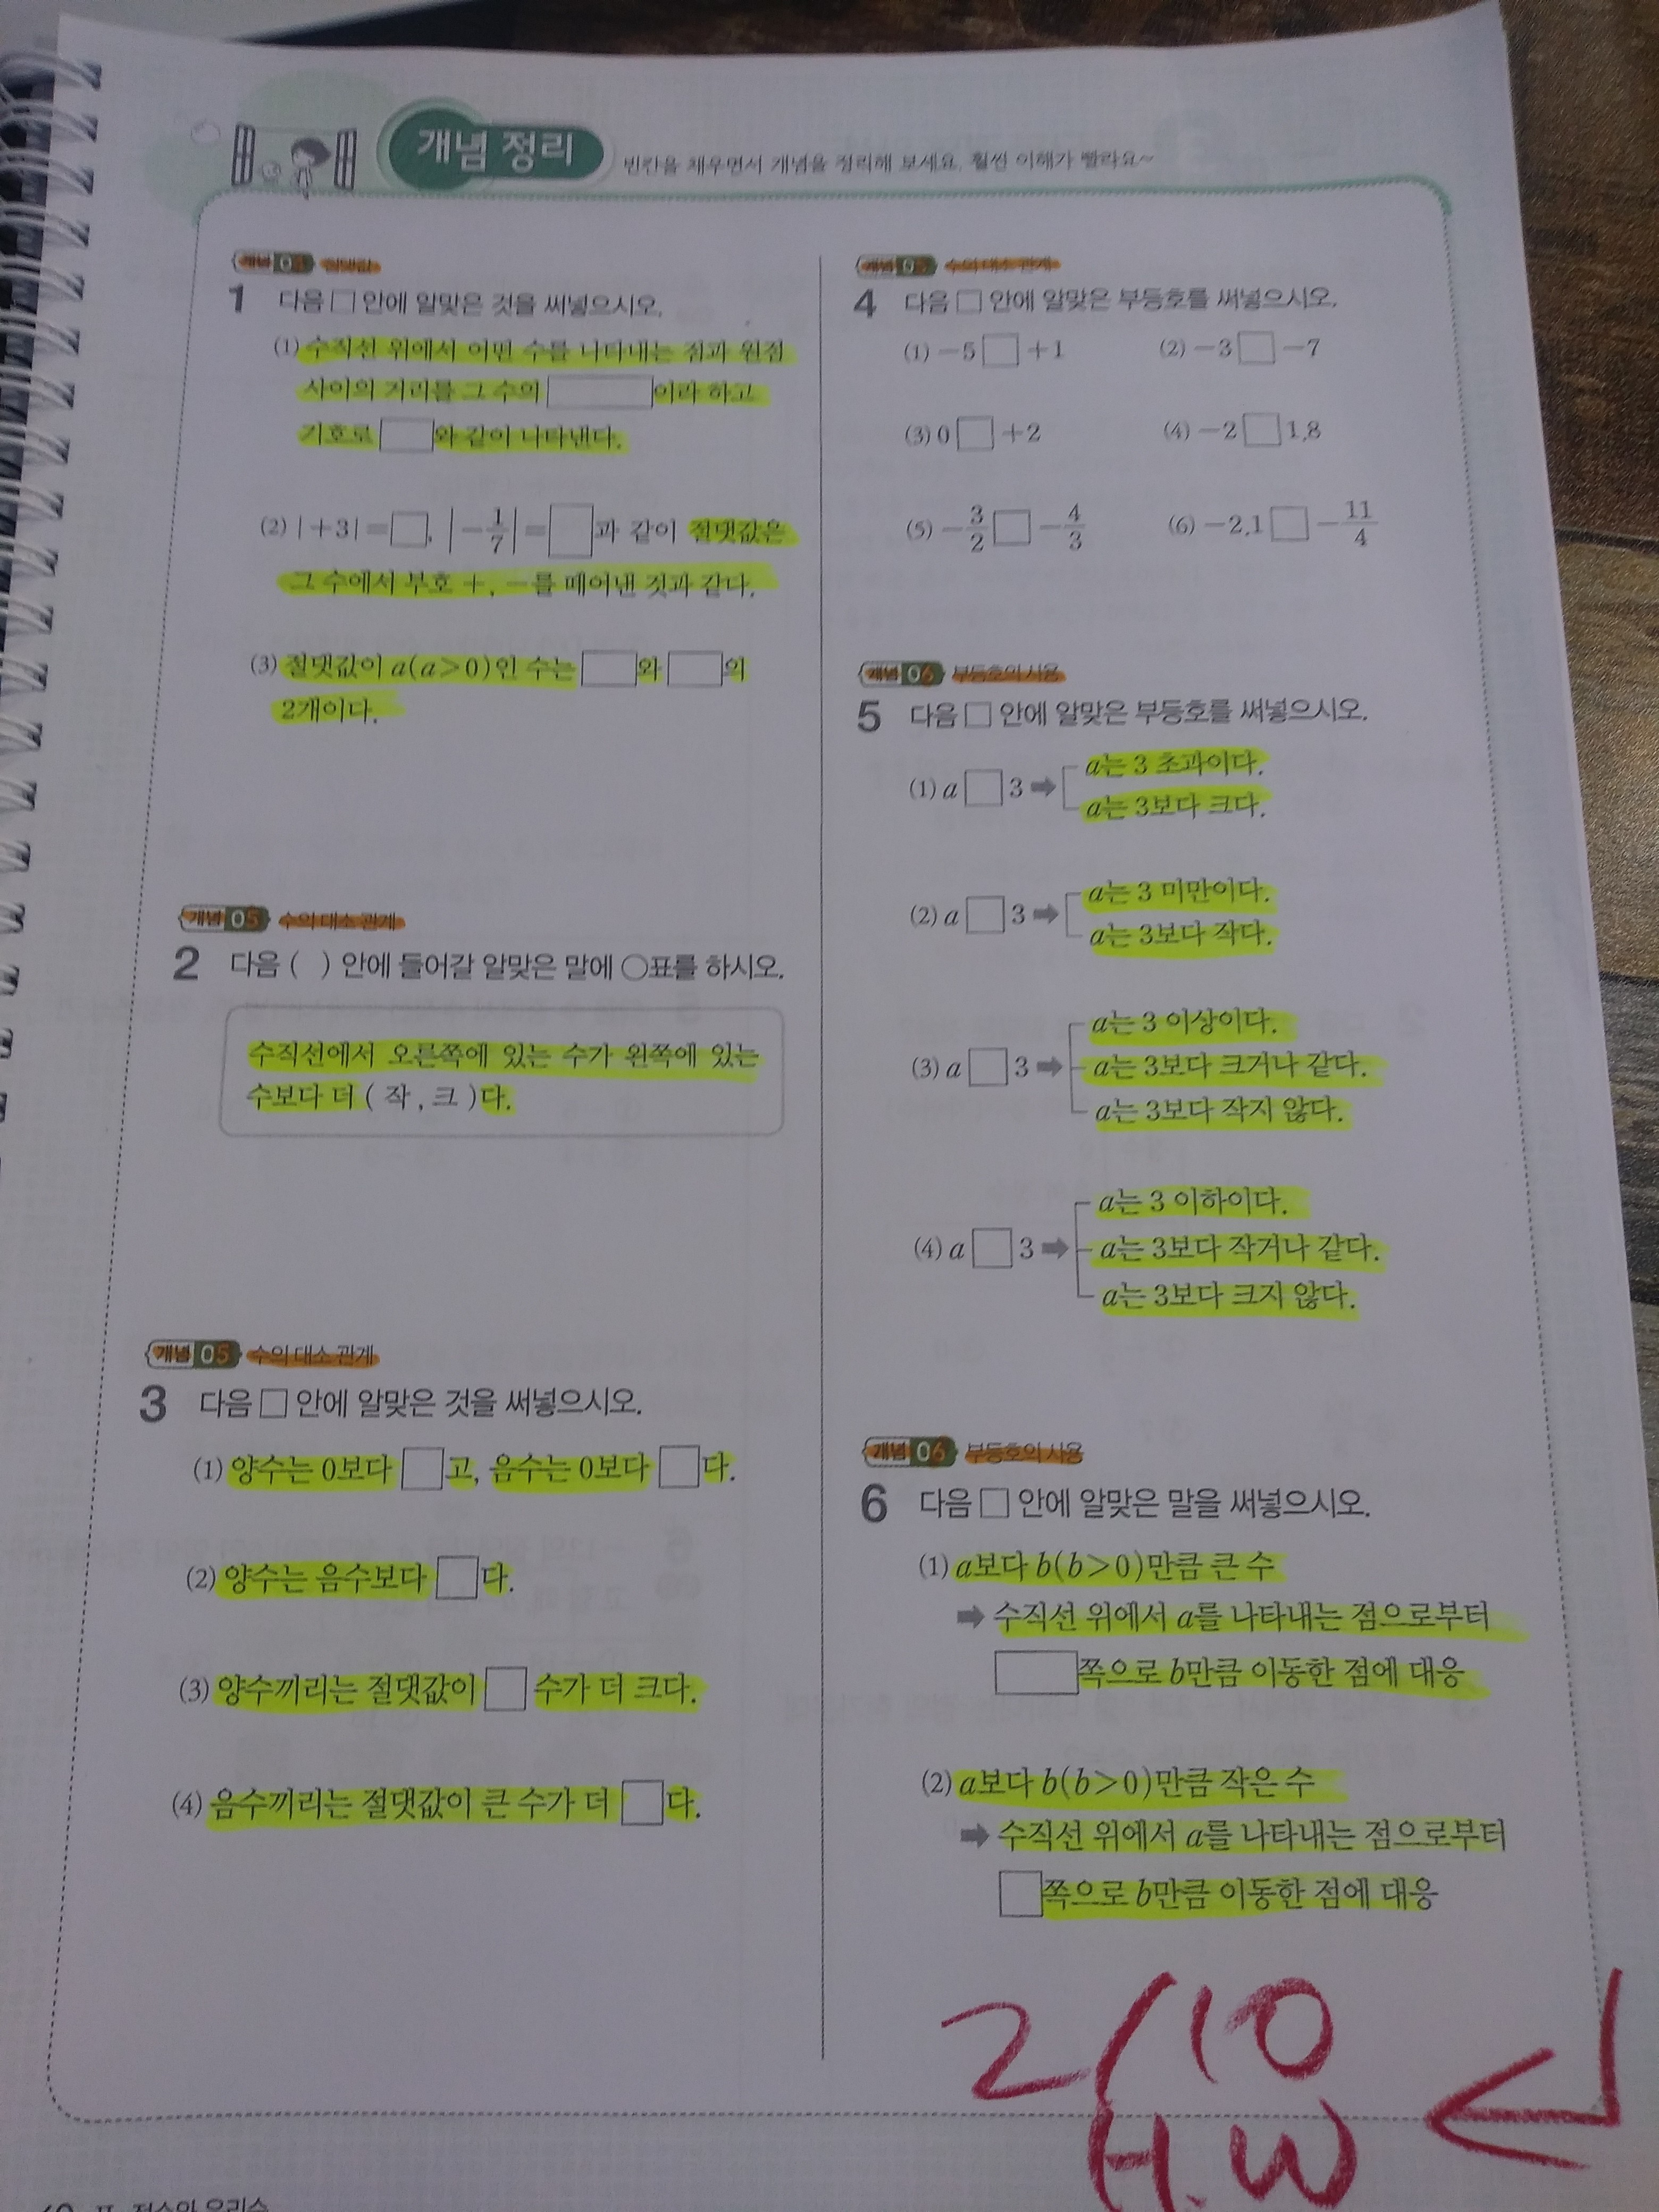 개념 정리 빈칸을 채우면서 개념을 정리해 보세요. 훨씬 이해가 빨라요~
개념 04 절댓값
1 다음 □ 안에 알맞은 것을 써넣으시오.
(1) 수직선 위에서 어떤 수를 나타내는 점과 원점
사이의 거리를 그 수의 □이라 하고
기호로 □와 같이 나타낸다.
(2) |+3|=□, |-1/7|=□과 같이 절댓값은
그 수에서 부호 +, -를 떼어낸 것과 같다.
(3) 절댓값이 a(a>0)인 수는 □와 □의
2개이다.
개념 05 수의 대소 관계
2 다음 ( ) 안에 들어갈 알맞은 말에 ○표를 하시오.
수직선에서 오른쪽에 있는 수가 왼쪽에 있는
수보다 더 ( 작 , 크 )다.
개념 05 수의 대소 관계
3 다음 □ 안에 알맞은 것을 써넣으시오.
(1) 양수는 0보다 □고, 음수는 0보다 □다.
(2) 양수는 음수보다 □다.
(3) 양수끼리는 절댓값이 □ 수가 더 크다.
(4) 음수끼리는 절댓값이 큰 수가 더 □다.
개념 05 수의 대소 관계
4 다음 □ 안에 알맞은 부등호를 써넣으시오.
(1) -5 □ +1 (2) -3 □ -7
(3) 0 □ +2 (4) -2 □ 1.8
(5) -3/2 □ -4/3 (6) -2.1 □ -11/4
개념 06 부등호의 사용
5 다음 □ 안에 알맞은 부등호를 써넣으시오.
(1) a □ 3 ➡ a는 3 초과이다.
a는 3보다 크다.
(2) a □ 3 ➡ a는 3 미만이다.
a는 3보다 작다.
a는 3 이상이다.
(3) a □ 3 ➡ a는 3보다 크거나 같다.
a는 3보다 작지 않다.
a는 3 이하이다.
(4) a □ 3 ➡ a는 3보다 작거나 같다.
a는 3보다 크지 않다.
개념 06 부등호의 사용
6 다음 □ 안에 알맞은 말을 써넣으시오.
(1) a보다 b(b>0)만큼 큰 수
➡ 수직선 위에서 a를 나타내는 점으로부터
□쪽으로 b만큼 이동한 점에 대응
(2) a보다 b(b>0)만큼 작은 수
➡ 수직선 위에서 a를 나타내는 점으로부터
□쪽으로 b만큼 이동한 점에 대응
2/10
H.W